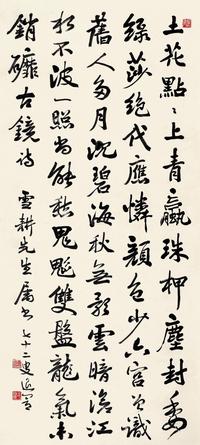 土花點點上青蠃珠柙塵封委
綠莎絕代應憐顏色少六宮曾識
舊人多月沉碧海秋無影雲暗滄江
夜不波一照尚能愁鬼魅雙盤龍氣未
銷磨古鏡詩 雪耕先生屬書 七十二叟